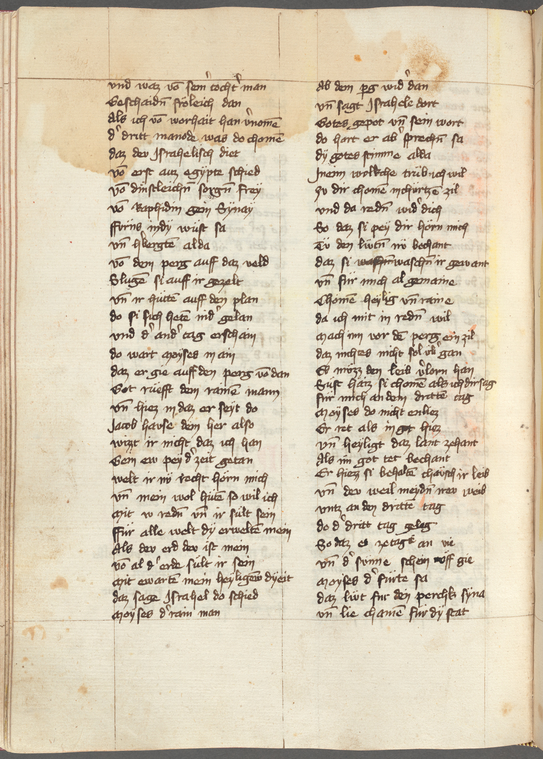 vnd waz vo sein tocht man
Beschaidn froleich dan
Als ich vo worhait han vnome
d dritt manode was do chomen
daz der Israhelisch diet
vo erst auz egypte schied
vo dinstleichn sorgn frey
vo Raphidin gein Synay
ffurns in dy wust sa
vn hbergten alda
vo dem perg auff daz veld
Slugen si auff ir gezelt
vn ir hutte auff den plan
do si sich hete nid gelan
vnd d and tag erschain
do wart moyses main
daz er gie auff den perg vo dan
Got rueft dem rainē mann
vn hiez in daz er seyt do
Jacob hawse dem her also
wizt ir nicht daz ich han
Gein ew pey d zeit getan
welt ir nu recht horn mich
vn mein wol huete so wil ich
mit w redn vn ir sult sein
ffur alle welt dy erwelten mein
Als der erd der ist mein
vo al d erde sult ir sein
mit ewarte mein heyligew dyeit
daz sage Israhel do schied
moyses d rain man
Ab dem pg wid dan
vn sagt Israhele dort
Gotes gepot vn sein wort
do hort er ab sprechn sa
dy gotes stimme alda
Jnem wolkche trub ich wil
zu dir chomē in churtze zil
vnd da redn wid dich
So daz si pey dir horn mich
Tu den luten nu bechant
daz si waschn ir gewant
vn fur mich al gemaine
Chomen heylig vn raine
da ich mit in redn wil
mach im vor de perg ein zil
daz iniches nicht sol vb gan
Es muzz den leib vlorn han
Sust haiz si chomē als ich dir sag
fur mich an dem dritten tag
moyses do nicht enliez
Er tet als in got hiez
vn heyligt daz lant zehant
Als im got tet bechant
Er hiez si behalte cheusch ir leib
vn der weil meydn irew weib
vntz an den dritte tag
do d dritt tag gelag
So daz es
vn d sunne schein auff gie
moyses d furte sa
daz liut fur den perch Syna
vn lie chamē fur dy stat